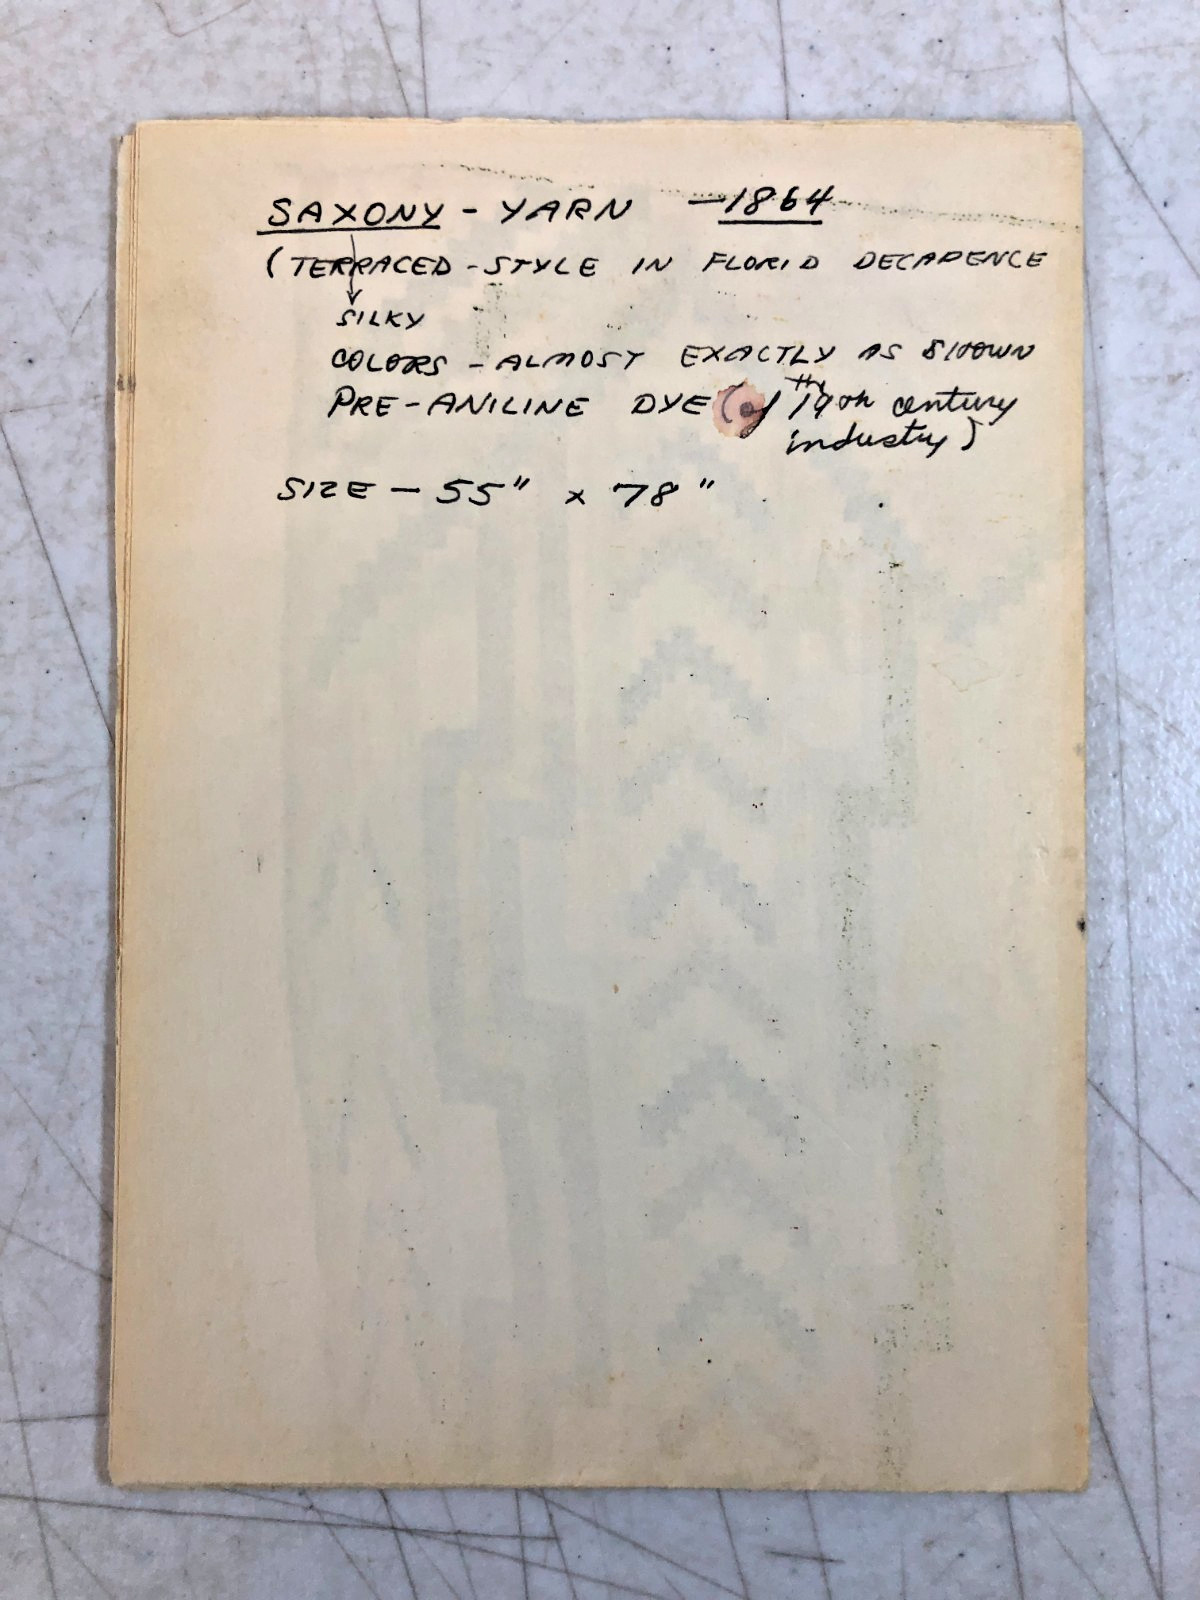 SAXONY - YARN - 1864
(TERRACED - STYLE IN FLORID DECADENCE
SILKY
COLORS - ALMOST EXACTLY AS SHOWN
PRE-ANILINE DYE (of 19th century
industry)
SIZE - 55" x 78"